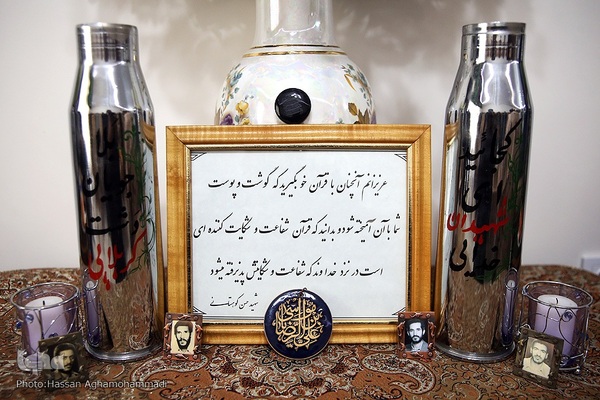 عزیزانم آنچنان با قرآن خو بگیرید که گوشت و پوست
شما با آن آمیخته شود و بدانید که قرآن شفاعت و شکایت کننده ای
است در نزد خداوند که شفاعت و شکایتش پذیرفته میشود
شهید
کجائید
ای
شهیدان
خدایی
کربلایی
Photo:Hassan Aghamohammadi